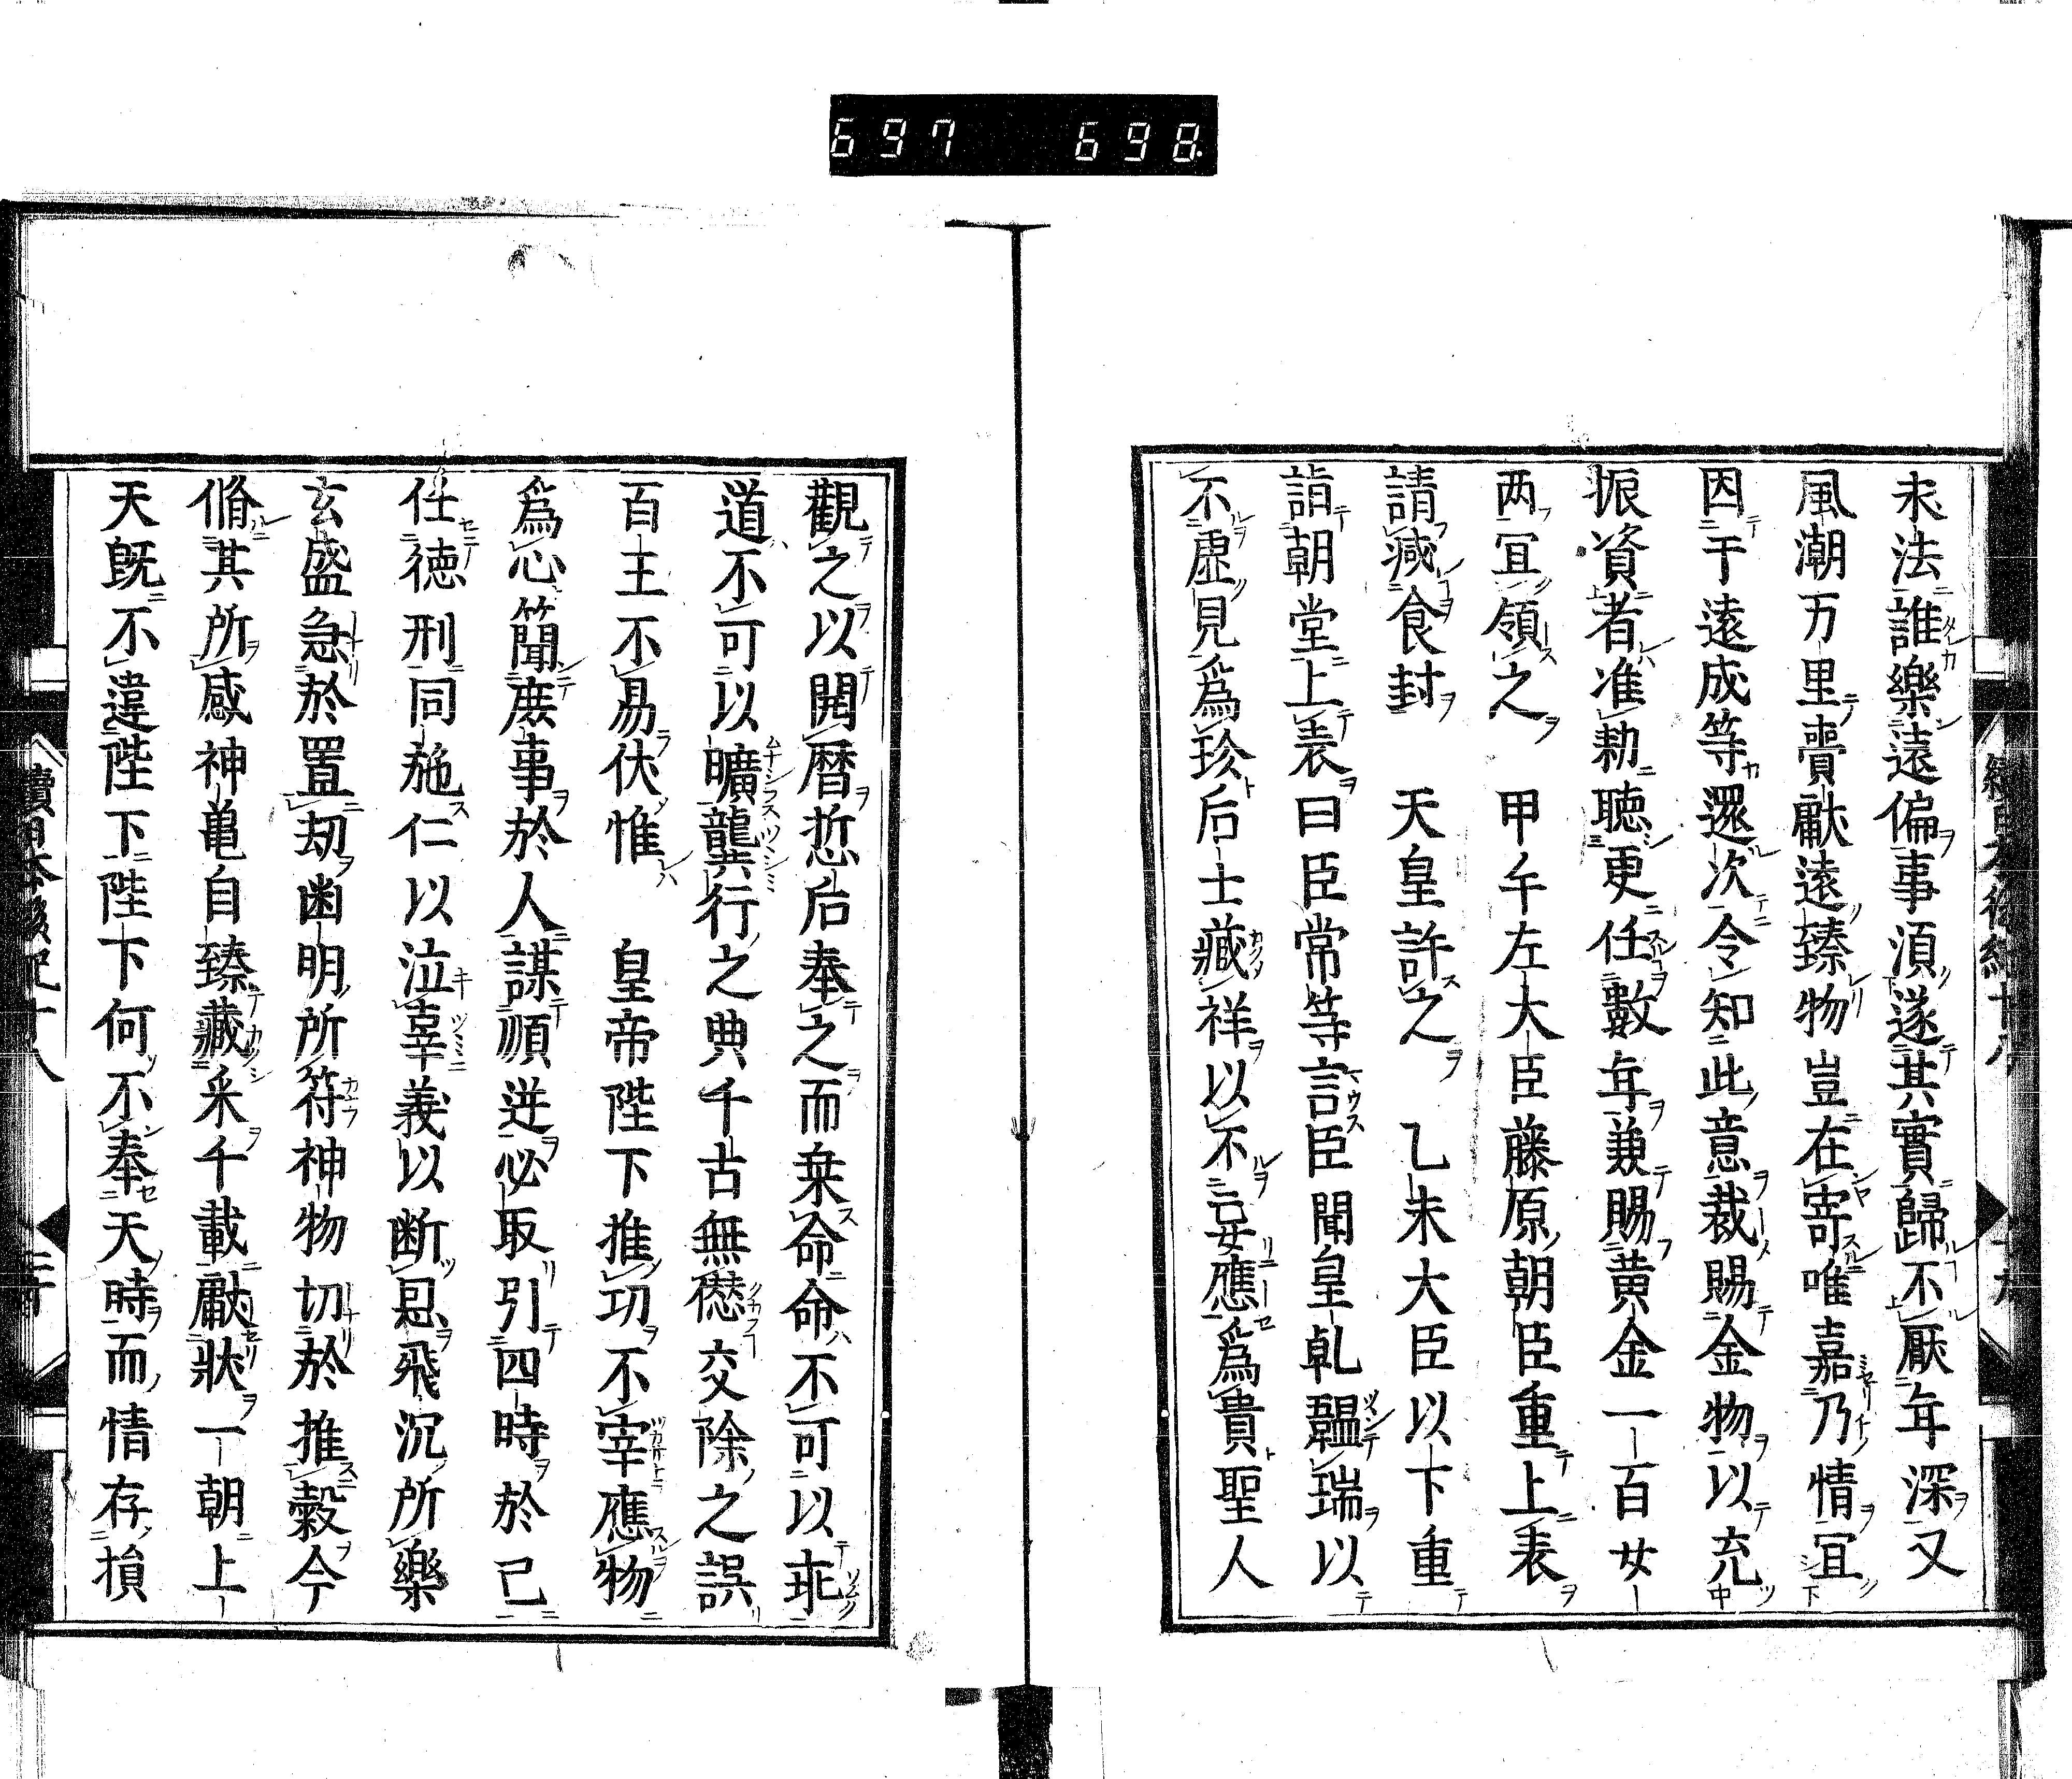 697 698
求法誰樂遠偏事須遂其實歸不厭年深又
風潮万里賷獻遠臻物豈在寄唯嘉乃情宜
因于遠成等還次令知此意裁賜金物以充
振資者准勅聽更任數年兼賜黄金一百
两宜領之 甲午左大臣藤原朝臣重上表
請减食封 天皇許之 乙未大臣以下重
詣朝堂上表曰臣常等言臣聞皇乹韞瑞以
不虚見爲珍后土藏祥以不妄應爲貴聖人
觀之以開暦悊后奉之而乗命命不可以乖
道不可以曠龔行之典千古無僽交除之誤
百王不易伏惟 皇帝陛下推功不宰應物
爲心簡庶事於人謀順逆必取引四時於己
任徳刑同施仁以泣辜義以断恩飛沉所樂
玄盛急於置劫幽明所符神物切於推縠今
脩其所感神亀自臻藏采千載獻狀一朝上
天既不違陛下陛下何不奉天時而情存損
續日本後紀十八